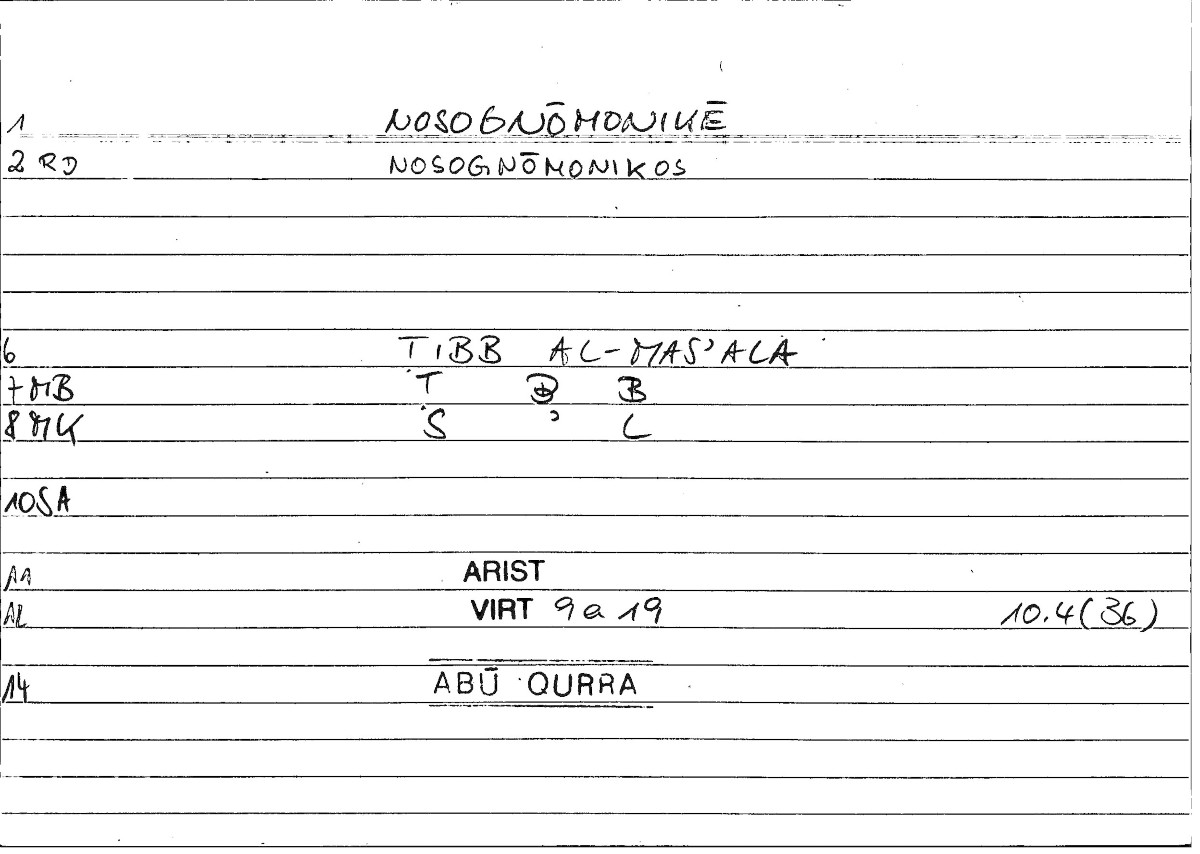 1 NOSOGNŌMONIKĒ
2 RD NOSOGNŌMONIKOS
6 ṬIBB AL-MAS’ALA
7 MB Ṭ B B
8 MK S ’ L
10 SA
11 ARIST
12 VIRT 9 a 19 10.4(36)
14 ABŪ QURRA